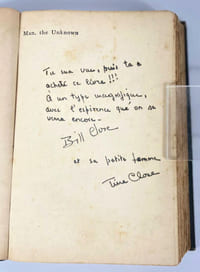 Man, the Unknown
Tu me vue, puis tu a
acheté ce livre !!!
À un type magnifique,
avec l'espérance qu'on se
verra encore.
Bill Clore
et sa petite femme
Tina Clore